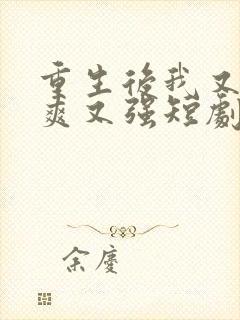 重生後我又
爽又強短劇
余慶